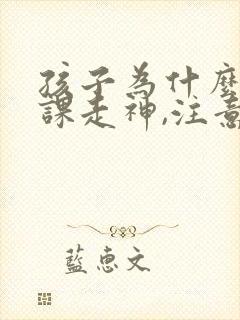 孩子為什麼
課走神,注意
藍惠文